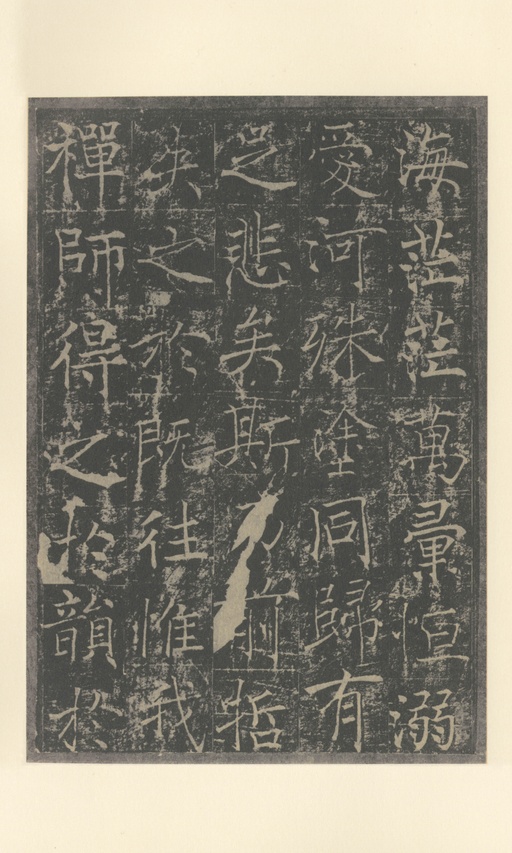 海茫茫萬彙恒溺
愛河殊塗同歸有
足悲矣斯乃前哲
失之於既往惟我
禪師得之於韻於